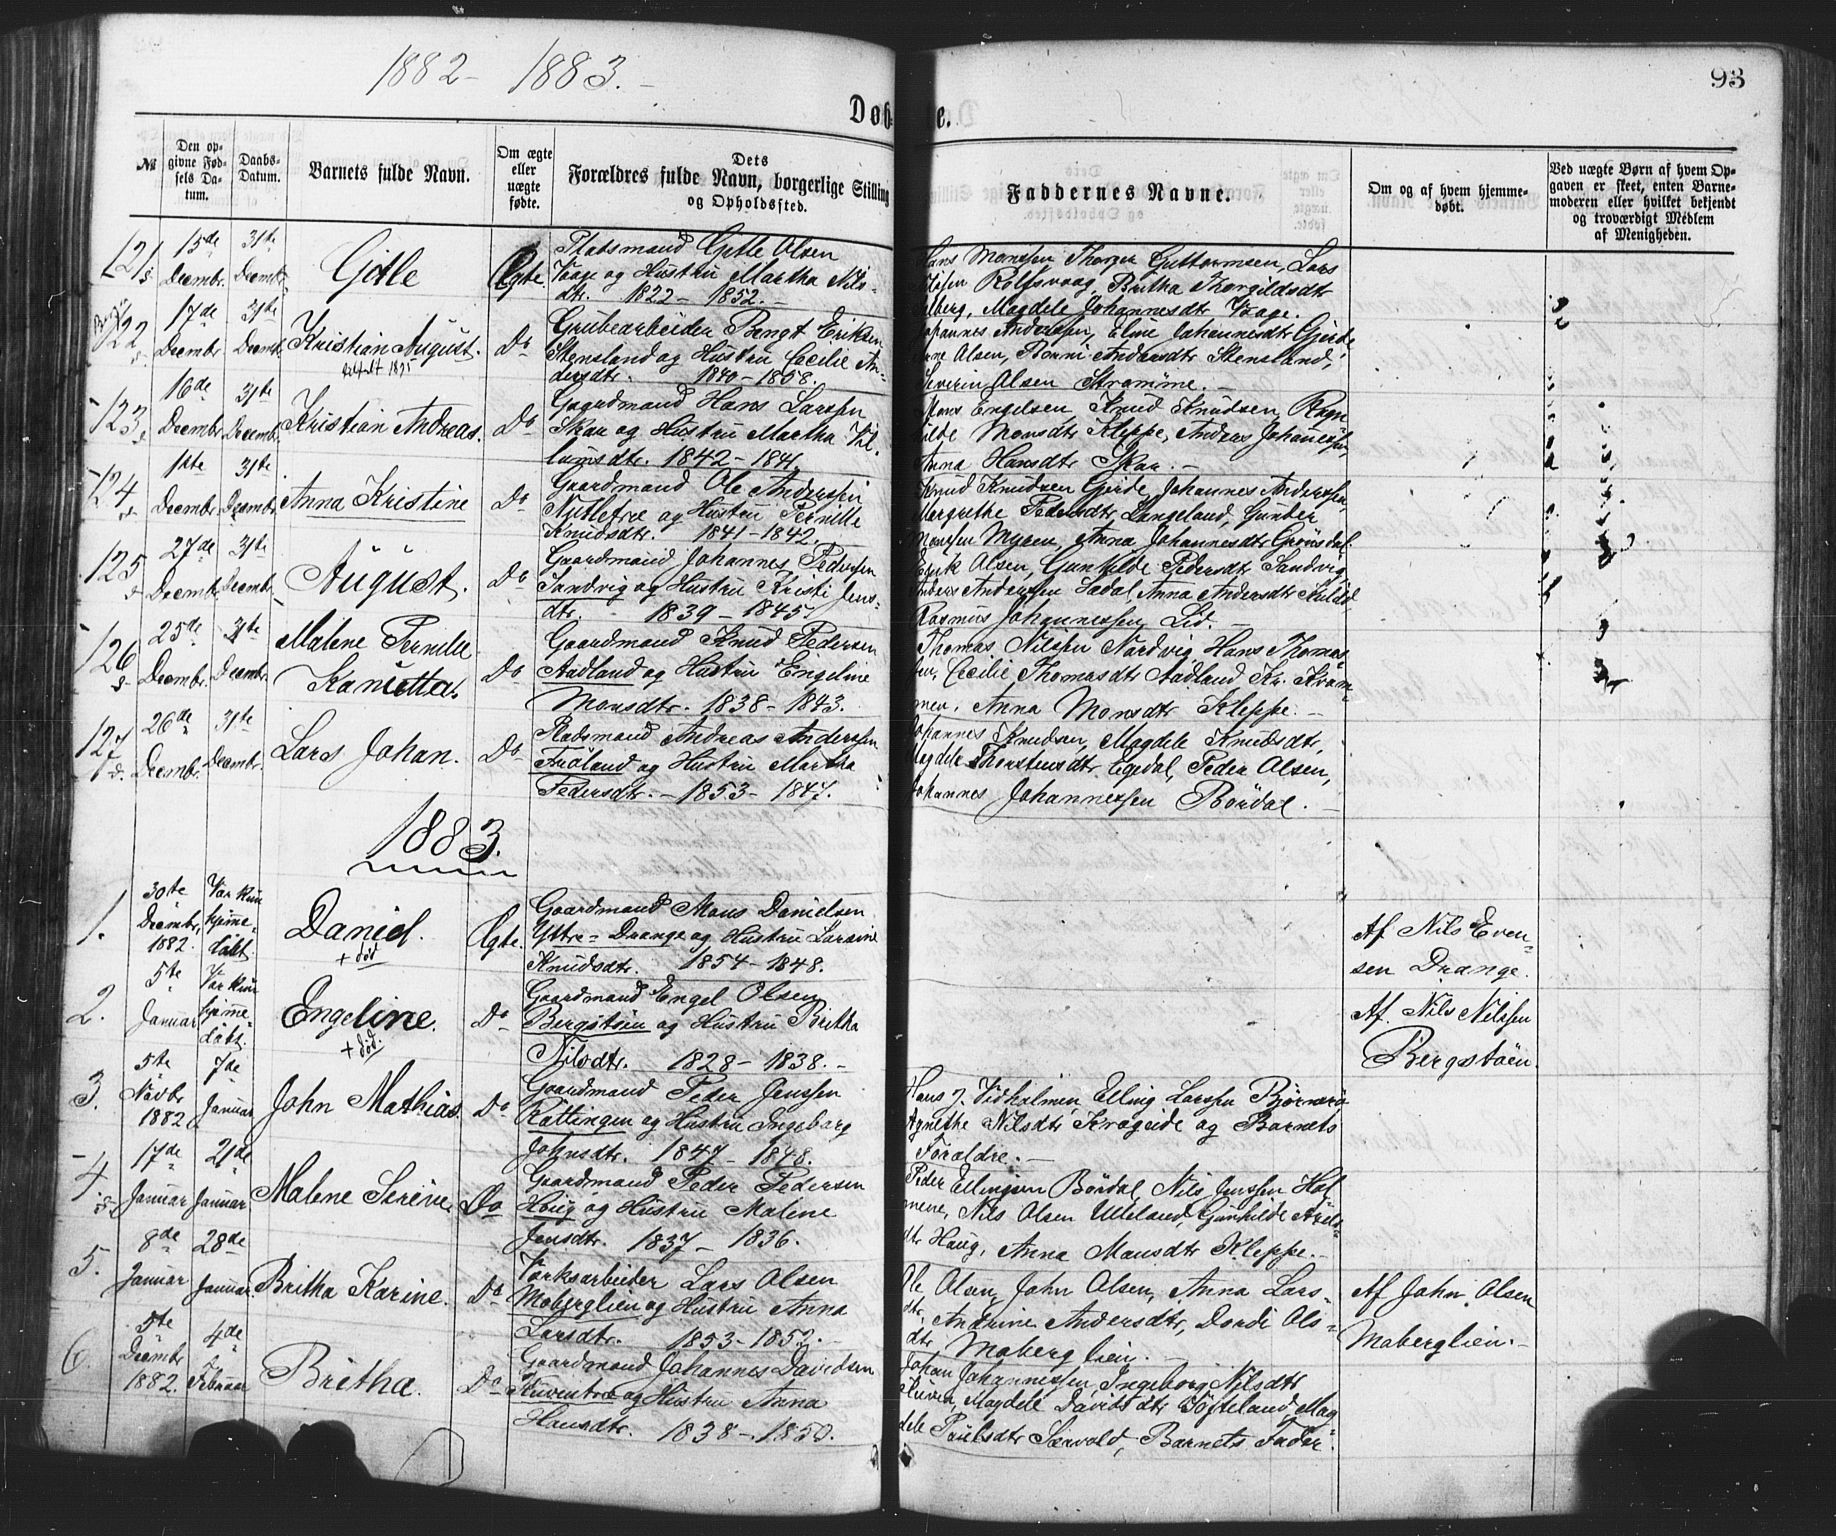 1882 - 1883. -
93
Døbte.
№
Den opgivne Fødsels Datum.
Daabs-Datum.
Barnets fulde Navn.
Om ægte eller uægte fødte.
Dets Forældres fulde Navn, borgerlige Stilling og Opholdssted.
Faddernes Navne.
Om og af hvem hjemmedøbt.
Ved uægte Børn af hvem Opgaven er skeet, enten Barnemoderen eller hvilket bekjendt og troværdigt Medlem af Menigheden.
121
15de Decembr.
31te Decembr.
Gitle
Ægte
Pladsmand Gitle Olsen
Vaage og Hustru Martha Nils-
dtr. 1822 - 1852. -
Hans Monssen, Thorger Guttormsen, Lars
Nilsen Rolfsvaag, Britha Thorgildsdtr
Magdele Johannesdtr Vaage.
122
17de Decembr.
31te Decembr.
Kristian August.
Do
Grubearbeider Bengt Eriksen
Stensland og Hustru Cecilie An-
dersdtr. 1840 - 1858.
Johannes Anderssen, Eline Johannesdtr Gjerde,
Arne Olsen, Andersdtr Stensland,
Severin Olsen Strømme. -
123
16de Decembr.
31te Decembr.
Kristian Andreas.
Do
Gaardmand Hans Larssen
Skaa og Hustru Martha Vil-
lumsdtr. 1842 - 1841.
Mons Engelsen, Knud Knudsen, Ragn-
hilde Monsdtr Kleppe, Anders Johannessen,
Anna Hansdtr Skaa. -
124
31te Decembr.
Decembr.
Anna Kristine
Do
Gaardmand Ole Anderssen
og Hustru Pernille
Knudsdtr. 1841 - 1842.
Knud Knudsen Gjerde, Johannes Anderssen,
Margrethe Pedersdtr Langeland, Gunder
Monssen Myren, Anna Johannesdtr Grønsdal.
125
27de Decembr.
31te Decembr.
August.
Do
Gaardmand Johannes Pedersen
Sandvig og Hustru Kristi Jens-
dtr. 1839 - 1845.
Erik Olsen, Gunhilde Pedersdtr Sandvig,
Anders Anderssen Hadal, Anna Andersdtr
Rasmus Johannessen Lid. -
126
25de Decembr.
31te Decembr.
Malene Pernille
Do
Gaardmand Knud Pedersen
Aadland og Hustru Engeline
Monsdtr. 1838 - 1843.
Thomas Nilssen Nordvig, Hans Thomas-
sen, Cecilie Thomasdtr Aadland, Kr.
Anna Monsdtr Kleppe. -
127
26de Decembr.
31te Decembr.
Lars Johan.
Do
Pladsmand Andreas Anderssen
Frøland og Hustru Martha
Pedersdtr. - 1853 - 1847.
Johannes Knudsen, Magdele Knudsdtr,
Magdele Thorstensdtr Egedal, Peder Olsen,
Johannes Johannessen Børdal. -
1883.
1.
30te Decembr. 1882.
Var kun hjemme-døbt.
Daniel.
+ død
Ægte.
Gaardmand Mons Danielsen
Yttre-Drange og Hustru
Knudsdtr. 1854 - 1848.
Af Nils Even-
sen Drange.
2.
5te Januar
Var kun hjemme-døbt.
Engeline.
+ død.
Do
Gaardmand Engel Olsen
Bergstøen og Hustru Britha
Nilsdtr. 1828 - 1838. -
Af. Nils Nilssen
Bergstøen.
3.
5te Novbr 1882
7de Januar
John Mathias
Do
Gaardmand Peder Jenssen
Røttingen og Hustru Ingeborg
Johnsdtr. 1847 - 1848.
Hans J. Vidholmen, Elling Larssen
Agnethe Nilsdtr Krogeide og Barnets
Forældre. -
4.
17de Januar
21de Januar.
Malene Serine.
Do
Gaardmand Peder Pedersen
Houg og Hustru Malene
Jensdtr. 1837 - 1836.
Peder Ellingsen Børdal, Nils Jenssen Hol-
mene, Nils Olsen Ulleland, Gunhilde
dtr Haug, Anna Monsdtr Kleppe. -
5.
8de Januar
28de Januar.
Britha Karine.
Do
Værksarbeider Lars Olsen
Moberglien og Hustru Anna
Larsdtr. 1853 - 1852. -
Ole Olsen, John Olsen, Anna Lars-
dtr, Andrine Andersdtr, Dordi Ols-
dtr Moberglien. -
Af John Olsen
Moberglien. -
6.
5te Decembr 1882.
4de Februar
Britha.
Do
Gaardmand Johannes Davidsen
og Hustru Anna
Hansdtr. 1838 - 1850.
Johan Johannessen, Ingeborg Nilsdtr
Magdele Davidsdtr Tøsteland, Mag-
dele Poulsdtr Særvold, Barnets Fader.